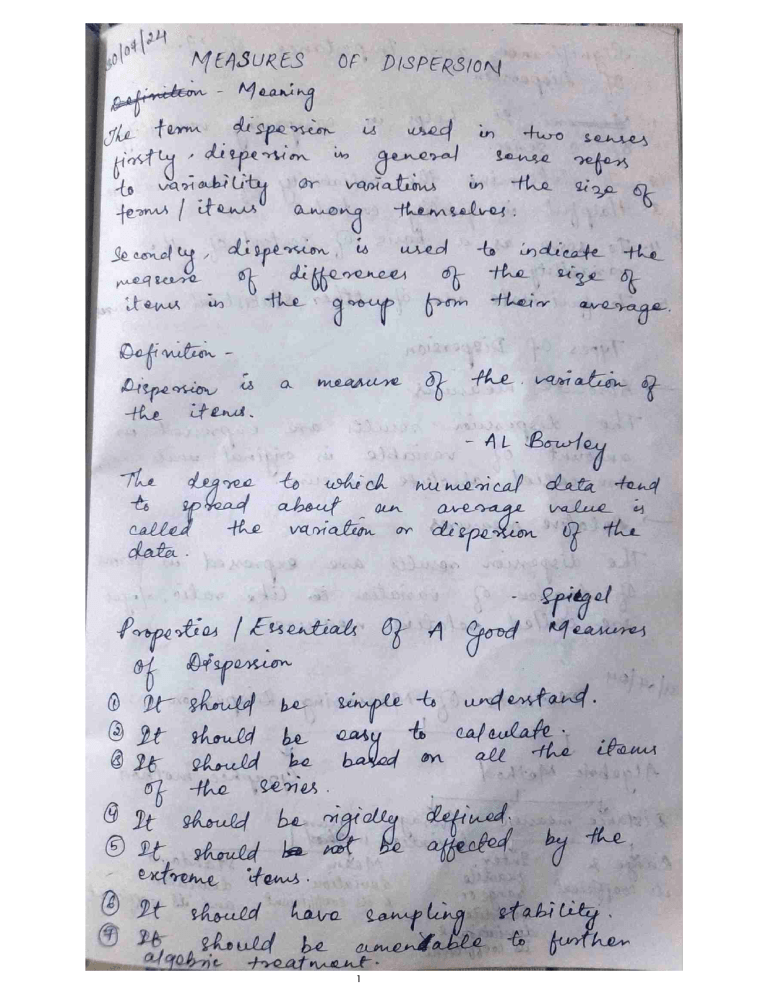 30/07/24
MEASURES OF DISPERSION
Definition - Meaning
The term dispersion is used in two senses
firstly, dispersion in general sense refers
to variability or variations in the size of
terms / items among themselves.
Secondly, dispersion is used to indicate the
measure of differences of the size of
items in the group from their average.
Definition -
Dispersion is a measure of the variation of
the items.
- AL Bowley
The degree to which numerical data tend
to spread about an average value is
called the variation or dispersion of the
data.
- Spiegel
Properties / Essentials Of A Good Measures
of Dispersion
① It should be simple to understand.
② It should be easy to calculate.
③ It should be based on all the items
of the series.
④ It should be rigidly defined.
⑤ It should be not be affected by the
extreme items.
⑥ It should have sampling stability.
⑦ It should be amendable to further
algebric treatment.
1